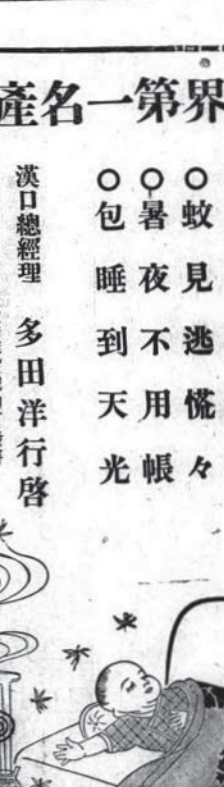 界第一名產
○蚊見逃慌々
○暑夜不用帳
○包睡到天光
漢口總經理 多田洋行啓